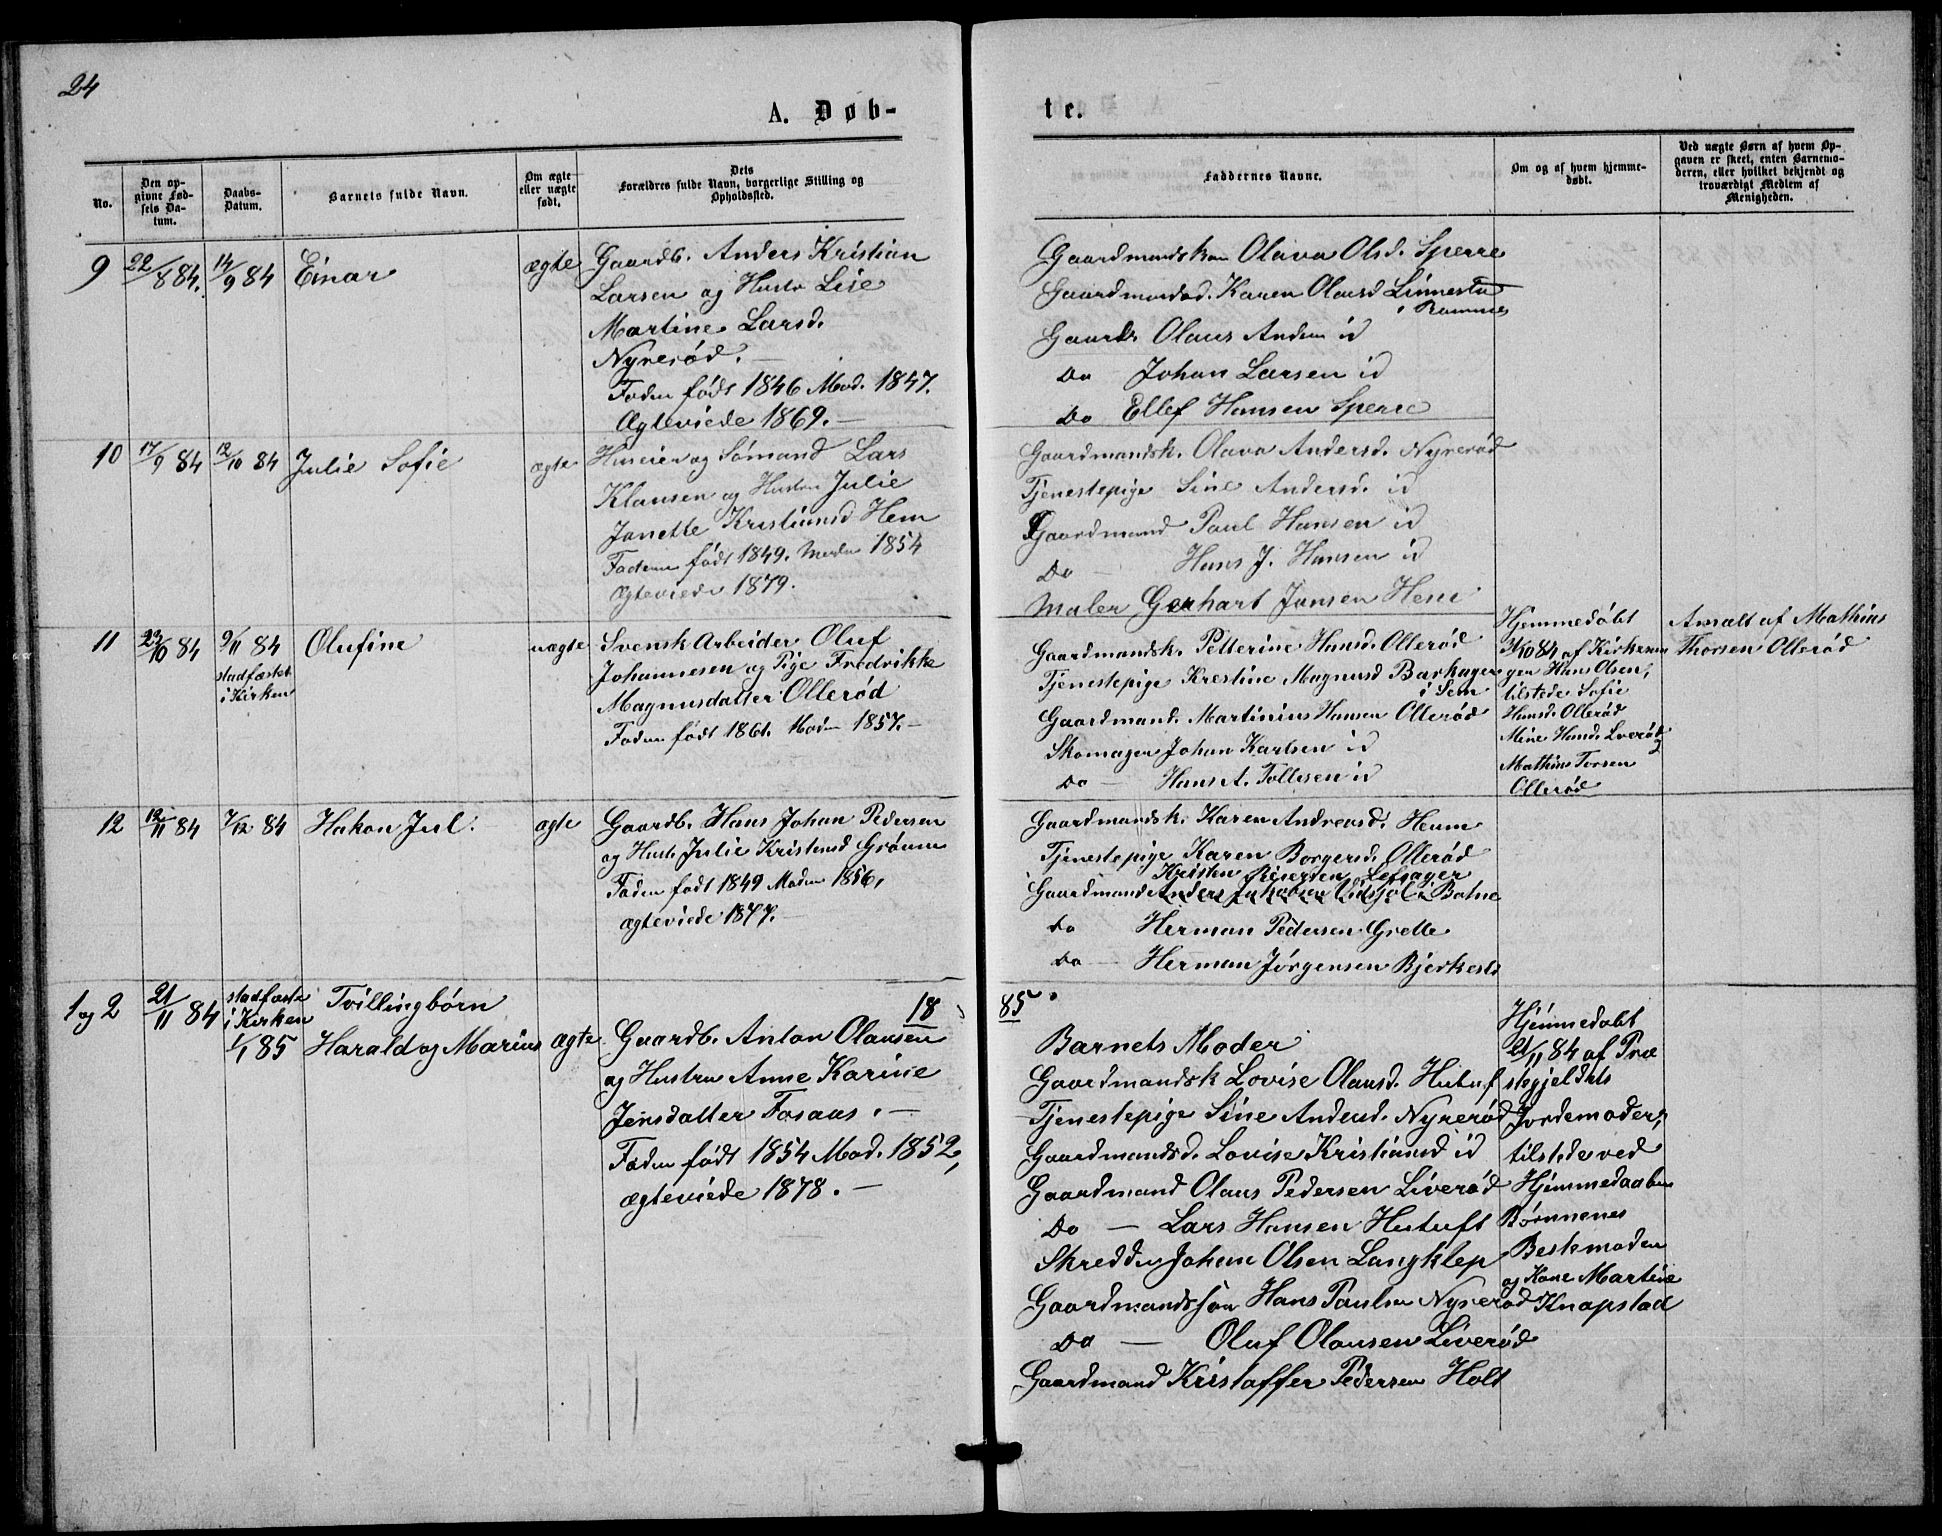 24
A. Døb-
te.
No.
Den op-
givne Fød-
sels Da-
tum.
Daabs-
Datum.
Barnets fulde Navn.
Om ægte
eller uægte
født.
Dets
Forældres fulde Navn, borgerlige Stilling og
Opholdssted.
Faddernes Navne.
Om og af hvem hjemme-
døbt.
Ved uægte Børn af hvem Op-
gaven er skeet, enten Barnemo-
deren, eller hvilket bekjendt og
troværdigt Medlem af
Menigheden.
9
22/8 84.
14/9 84
Einar
ægte
Gaardb. Anders Kristian
Larsen og Hustr Lise
Martine Larsd.
Nyrerød. —
Faden født 1846 Mod. 1847.
Ægteviede 1869. —
Gaardmandskon Olava Olsd. Sperre
Gaardmandsd. Karen Olausd Linnestad
i Ramnes
Gaardb Olaus Andersen id
Do Johan Larsen id
Do Ellef Hansen Sperre
10
17/9 84
12/10 84
Julie Sofie
ægte
Huseier og Sømand Lars
Klausen og Hustru Julie
Janette Kristiansd Hem
Faderen født 1849. Moder 1854
Ægteviede 1879.
Gaardmandsk. Olava Andersd. Nyrerød
Tjenestepige Sine Andersd. id
Gaardmand Paul Hansen id
Do — Hans J. Hansen id
Maler Gerhart Jansen Hem
11
29/10 84
9/11 84
stadfæstet
i Kirken
Olufine
uægte
Svensk Arbeider Oluf
Johannesen og Pige Fredrikke
Magnusdatter Ollerød
Faden født 1861. Moden 1857. —
Gaardmandsk. Petterine Hansd. Ollerød
Tjenestepige Krestine Magnusd Barkager
i Sem
Gaardmand. Martinius Hansen Ollerød
Skomager Johan Karlsen id
Do — Hans A. Tollesen id
Hjemmedøbt
31/10 84 af Kirkesan
gen Hans Olsen,
tilstede Sofie
Hansd. Ollerød
Mine Hansd. Lverød
Mathias Torsen
Ollerød
Anmælt af Mathias
Thorsen Ollerød
12
12/11 84
7/12 84
Hakon Jul.
ægte
Gaardb. Hans Johan Pedersen
og Hustr Julie Kristensd Grønn
Faden født 1849 Moden 1856,
ægteviede 1877. —
Gaardmandsk. Karen Andreasd. Heum
Tjenestepige Karen Borgersd. Ollerød
Kristen Lefsager
Gaardmand Anders Jakobsen i Botne
Do Herman Pedersen Grette
Do — Herman Jørgensen Bjerkest
1885.
1 og 2
21/11 84
stadfæste
i Kirken
1/1 85
Tvillingbørn
Harald og Marius
ægte
Gaardb. Anton Olausen
og Hustru Anne Karine
Jensdatter Fosaas. —
Faden født 1854 Mod. 1852,
ægteviede 1878. —
Barnets Moder
Gaardmandsk Lovise Olausd. Hutuft
Tjenestepige Sine Andersd. Nyrerød
Gaardmandsd. Lovise Kristiansd id
Gaardmand Olaus Pedersen Liverød
Do — Lars Hansen Hutuft
Skredder Johan Olsen Langklep
Gaardmandssøn Hans Paulsen Nyrerød
Do — Oluf Olausen Liverød
Gaardmand Kristoffer Pedersen Holt
Hjemmedøbt
21/11 84 af Præ
stegjeldets
Jordemoder,
tilstede ved
Hjemmedaaben
Børnenes
Bestemoder
og Kone Martine
Knapstad